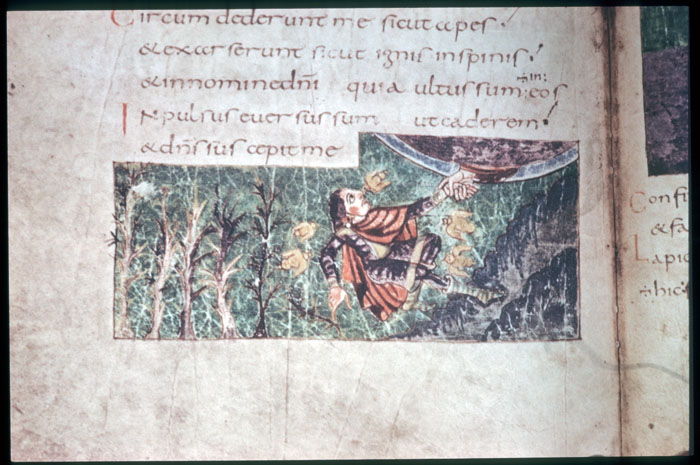 Circum dederunt me sicut apes
& exarserunt sicut ignis in spinis
& in nomine dn̄i quia ultus sum in eos
Inpulsus euersus sum ut caderem
& dn̄s sus cepit me
Confi
& fa
Lapi
hic